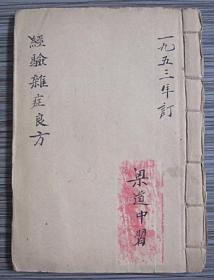 一九五三年訂
經驗雜症良方
梁道中習